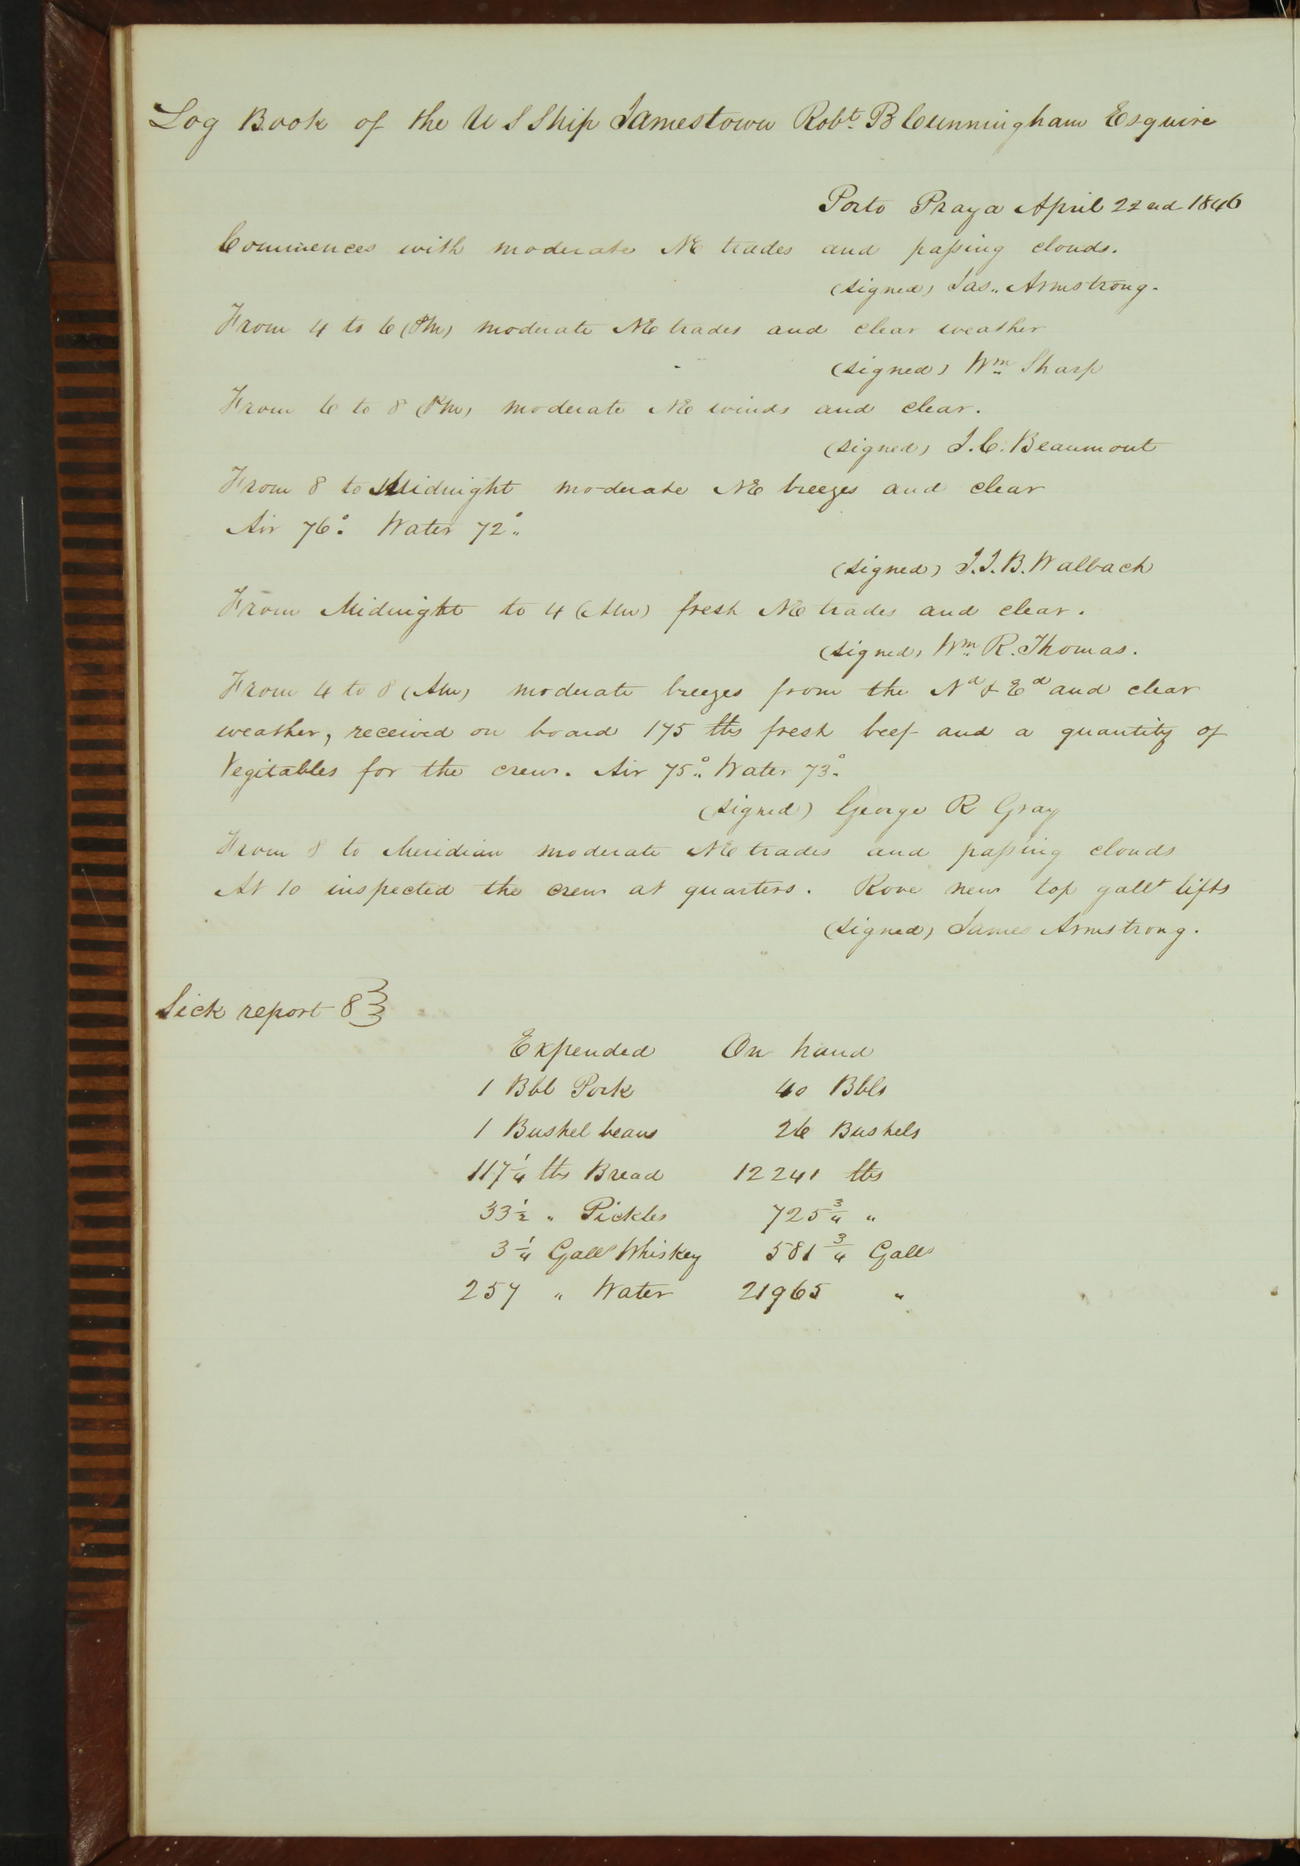 Log Book of the U S Ship Jamestown Robt. B Cunningham Esquire
Porto Praya April 22nd 1846
Commences with moderate NE trades and passing clouds.
(signed) Jas,, Armstrong.
From 4 to 6 (Pm) moderate NE trades and clear weather
(signed) Wm Sharp
From 6 to 8 (Pm) moderate NE winds and clear.
(signed) J. C. Beaumont
From 8 to Midnight moderate NE breezes and clear
Air 76°. Water 72°,,
(signed) J. J. B. Walbach
From Midnight to 4 (Am) fresh NE trades and clear.
(signed) Wm R. Thomas.
From 4 to 8 (Am) moderate breezes from the Nd & Ed and clear
weather, received on board 175 lbs fresh beef and a quantity of
Vegitables for the crew. Air 75°,, Water 73°.
(signed) George R Gray
From 8 to Meridian moderate NE trades and passing clouds
At 10 inspected the crew at quarters. Rove new top gallt lifts
(signed) James Armstrong.
Sick report 8}
Expended On hand
1 Bbl Pork 40 Bbls
1 Bushel beans 26 Bushels
117 1/4 lbs Bread 12241 lbs
33 1/2 " Pickles 725 3/4 "
3 1/4 Galls Whiskey 581 3/4 Galls
257 " Water 21965 "